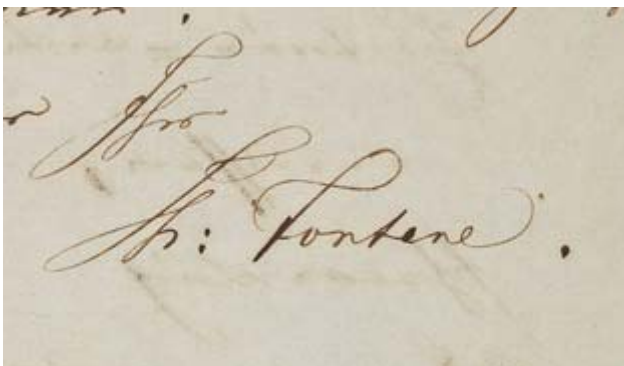 Ihr
Th: Fontane.